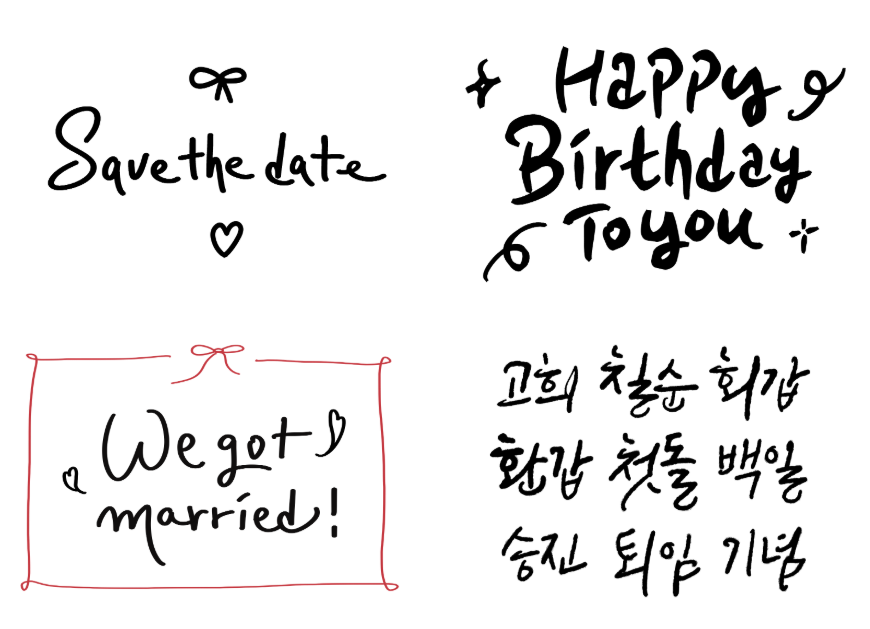 Save the date
Happy
Birthday
To you
We got
married!
고희 칠순 회갑
환갑 첫돌 백일
승진 퇴임 기념